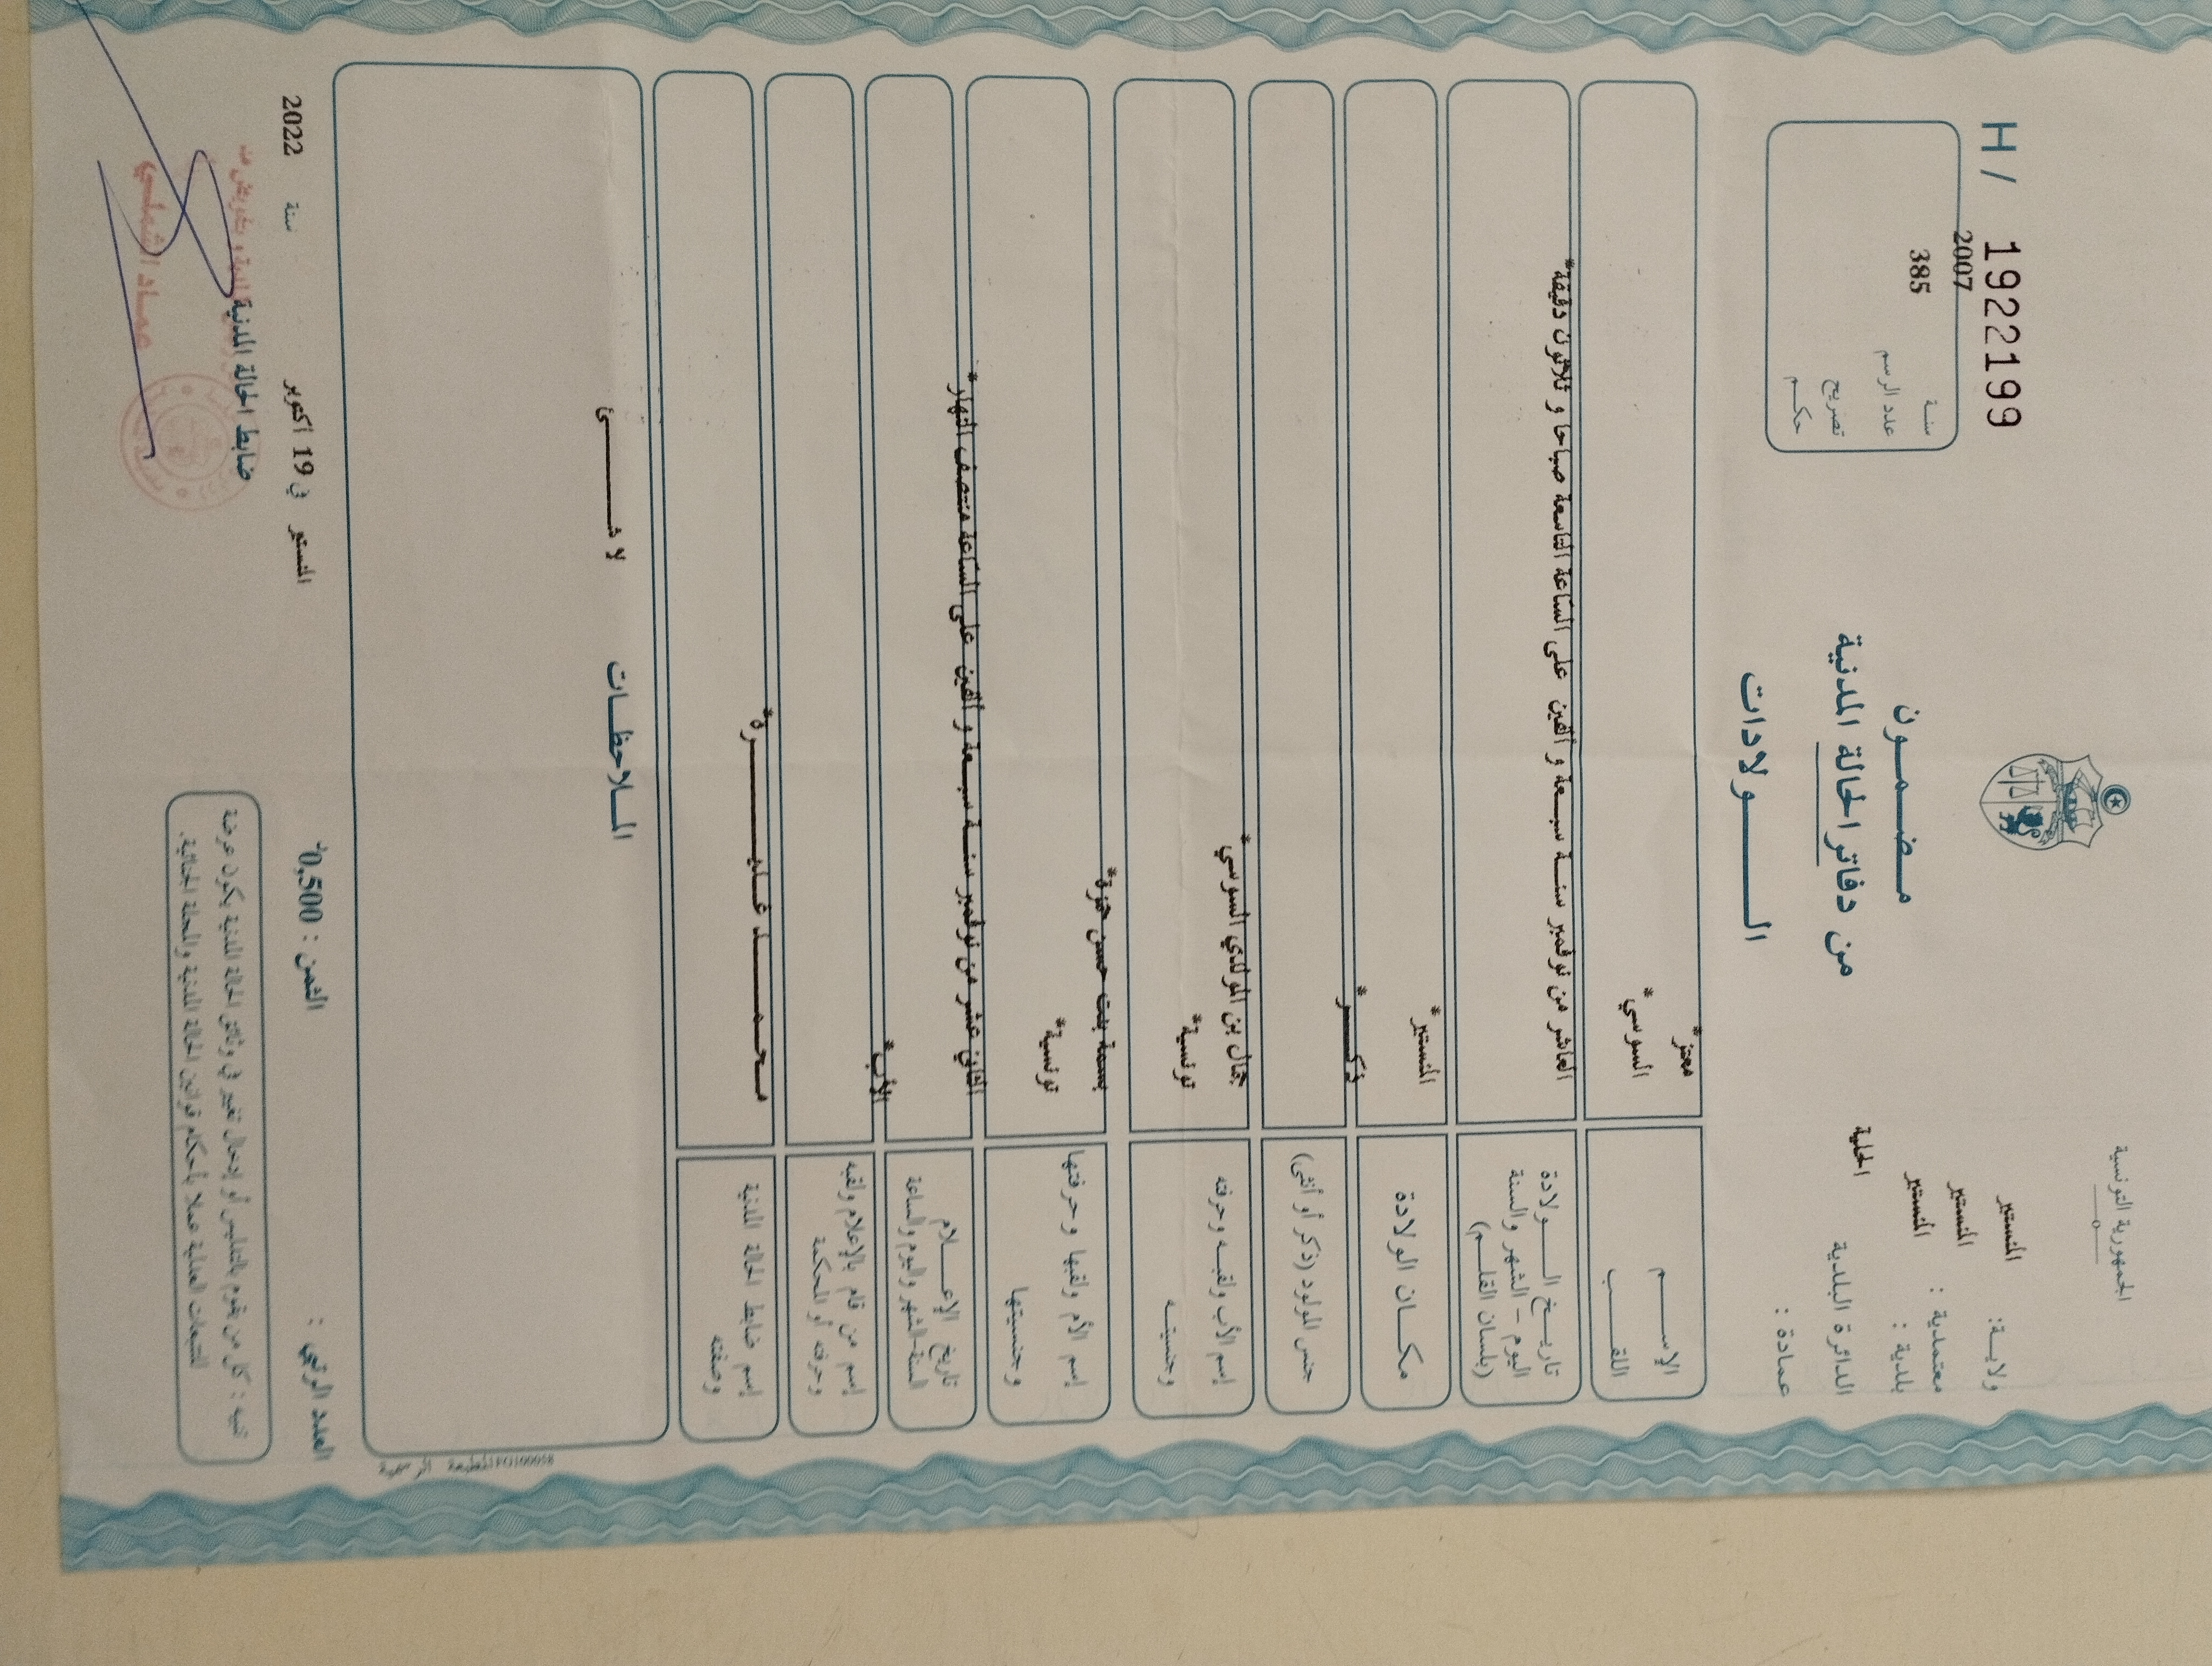 الجمهورية التونسية
H/ 1922199
ولاية: المنستير
معتمدية : المنستير
بلدية : المنستير
الدائرة البلدية المحلية
عمادة :
مضمون
من دفاتر الحالة المدنية
الولادات
سنة 2007
عدد الرسم 385
تصريح
حكم
الإسم معتز*
اللقب السوسي*
تاريخ الولادة
اليوم - الشهر والسنة
(بلسان القلم)
العاشر من نوفمبر سنة سبعة و ألفين على الساعة التاسعة صباحا و ثلاثون دقيقة*
مكان الولادة المنستير*
جنس المولود (ذكر أو أنثى) ذكر*
إسم الأب ولقبه وحرفته جمال بن المولدي السوسي*
وجنسيته تونسية*
إسم الأم ولقبها وحرفتها بسمة بنت حسن حمزة*
وجنسيتها تونسية*
تاريخ الإعلام
السنة-الشهر واليوم والساعة
الثاني عشر من نوفمبر سنة سبعة و ألفين على الساعة منتصف النهار*
إسم من قام بالإعلام ولقبه
وحرفته أو المحكمة
الأب*
إسم ضابط الحالة المدنية
وصفته
محمد غديرة*
الملاحظات
لا شئ
العدد الرقمي :
الثمن : 0,500
المنستير في 19 أكتوبر سنة 2022
ضابط الحالة المدنية
عماد الشملي
تنبيه : كل من يقوم بالتدليس أو إدخال تغيير في وثائق الحالة المدنية يكون عرضة
للتتبعات العدلية عملا بأحكام قوانين الحالة المدنية والمجلة الجنائية.
المطبعة الرسمية